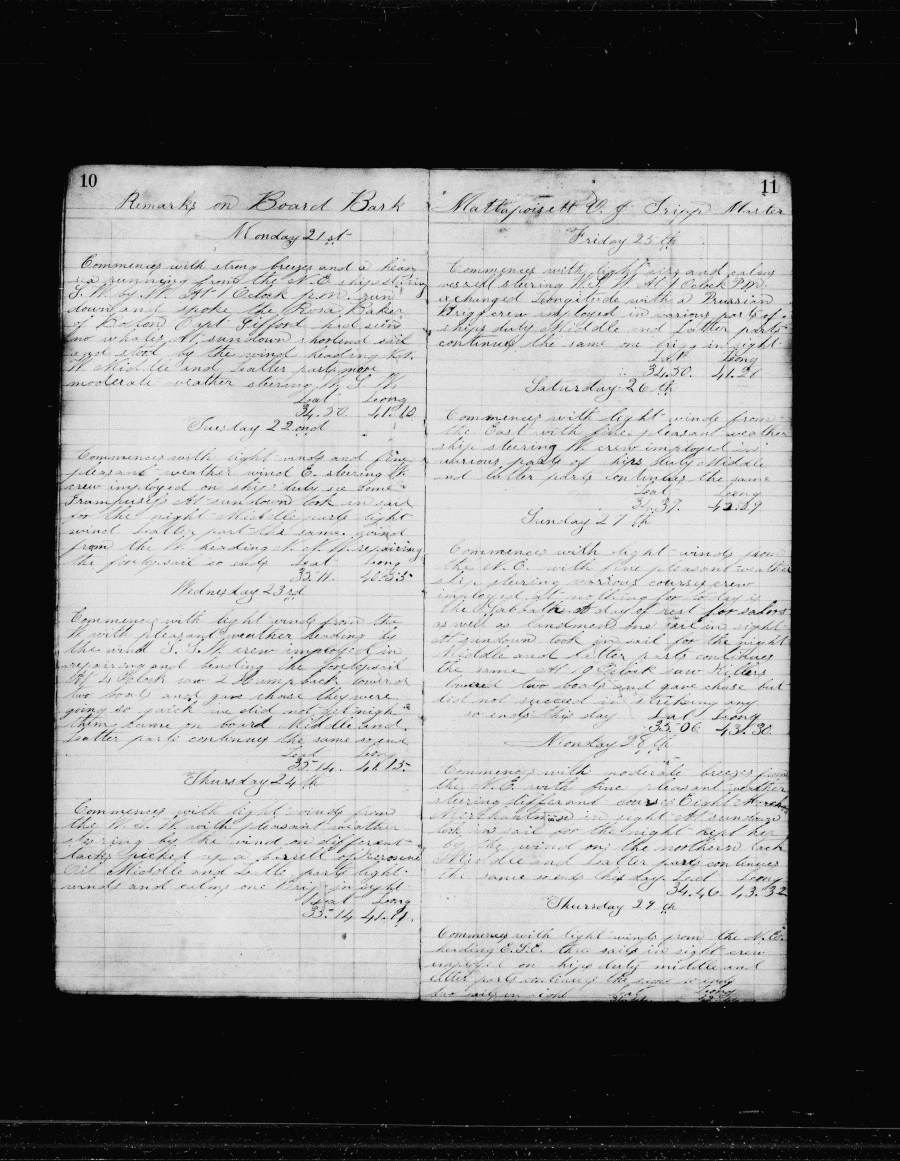 10
Remarks on Board Bark
Monday 21st
Commences with strong breezes and a heavy
sea running from the N.E. ship steering
S.W. by W. At 1 Oclock P.M. run
down and spoke the Rosa Baker
of Boston Capt Gifford had seen
no whales At sundown shortend sail
and stood by the wind heading
W Middle and Latter parts more
moderate weather steering W.S.W.
Lat Long
34.50 41.10
Tuesday 22ond
Commences with light winds and fine
pleasant weather wind E. steering W.
crew imployed on ships duty se some
Grampuses At sundown took in sail
for the night Middle parts light
wind Latter part the same wind
from the W. heading N.N.W. repairing
the foretopsail so ends Lat Long
35.11. 40.55
Wednesday 23rd
Commences with light winds from the
W with pleasant weather heading by
the wind S.S.W. crew imployed in
repairing and bending the foretopsail
At 4 Oclock saw 2 Humpback lowered
two boats and gave chase they were
going so quick we did not get nigh
them came on board Middle and
Latter parts continues the same so end
Lat Long
35.14. 41.15.
Thursday 24th
Commences with light winds from
the W.S.W. with pleasant weather
steering by the wind on different
tacks picked up a barrell of Kerosene
Oil Middle and Latter parts light
winds and calms one Brig in sight
Lat Long
35.14 41.11.
11
Mattapoisett W. J. Tripp Master
Friday 25th
Commences with light airs and calms
vessel steering W.S.W. At 1 Oclock P.M.
exchanged Longitude with a Prussian
Brigg crew imployed in various parts of
ships duty Middle and Latter parts
continues the same one brig in sight
Lat Long
34.50. 41.20
Saturday 26th
Commences with light winds from
the East with fine pleasant weather
ship steering W. crew imployed in
various parts of ships duty Middle
and latter parts continues the same
Lat Long
34.39. 42.29
Sunday 27th
Commences with light winds from
the N.E. with fine pleasant weather
ship steering various courses crew
imployed at nothing for to day is
the Sabbath a day of rest for salors
as well as landsmen one sail in sight
At sundown took in sail for the night
Middle and latter parts continues
the same At 10 Oclock saw Killers
lowered two boats and gave chase but
did not succeed in striking any
so ends this day Lat Long
35.06 43.30
Monday 28th
Commences with moderate breezes from
the N.E. with fine pleasant weather
steering different courses Eight
Merchantmen in sight At sundown
took in sail for the night kept her
by the wind on the northern tack
Middle and Latter parts continues
the same so ends this day. Lat Long
34.46 43.32
Thursday 29th
Commences with light winds from the N.E.
heading E.S.E. three sails in sight crew
imployed on ships duty middle and
latter parts continues the same so ends
two sails in sight Lat Long